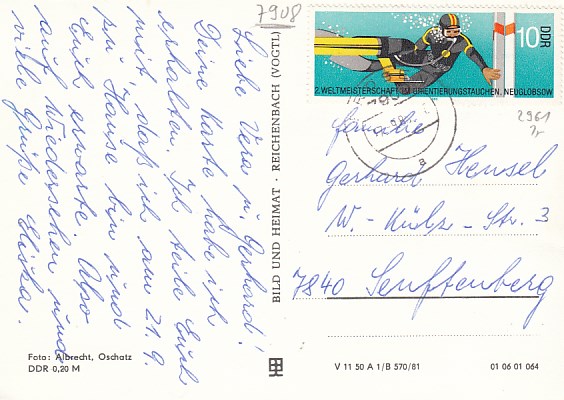 7908
Liebe Vera u. Gerhard!
Deine Karte habe ich
erhalten. Ich teile Euch
mit, daß ich am 21.9.
zu Hause bin und
Euch erwarte. Also
auf Wiedersehen und
viele Grüße Eliska.
Foto: Albrecht, Oschatz
DDR 0,20 M
BILD UND HEIMAT · REICHENBACH (VOGTL)
10 DDR
2. WELTMEISTERSCHAFT IM ORIENTIERUNGSTAUCHEN, NEUGLOBSOW
2961
Familie
Gerhard Hensel
W.-Külz-Str. 3
7840 Senftenberg
V 11 50 A 1/B 570/81
01 06 01 064